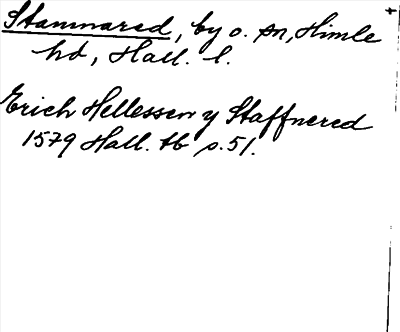 Stamnared, by o. sn, Himle
hd, Hall. l.
Erich Hellessen y Staffnered
1579 Hall. tb s. 51.